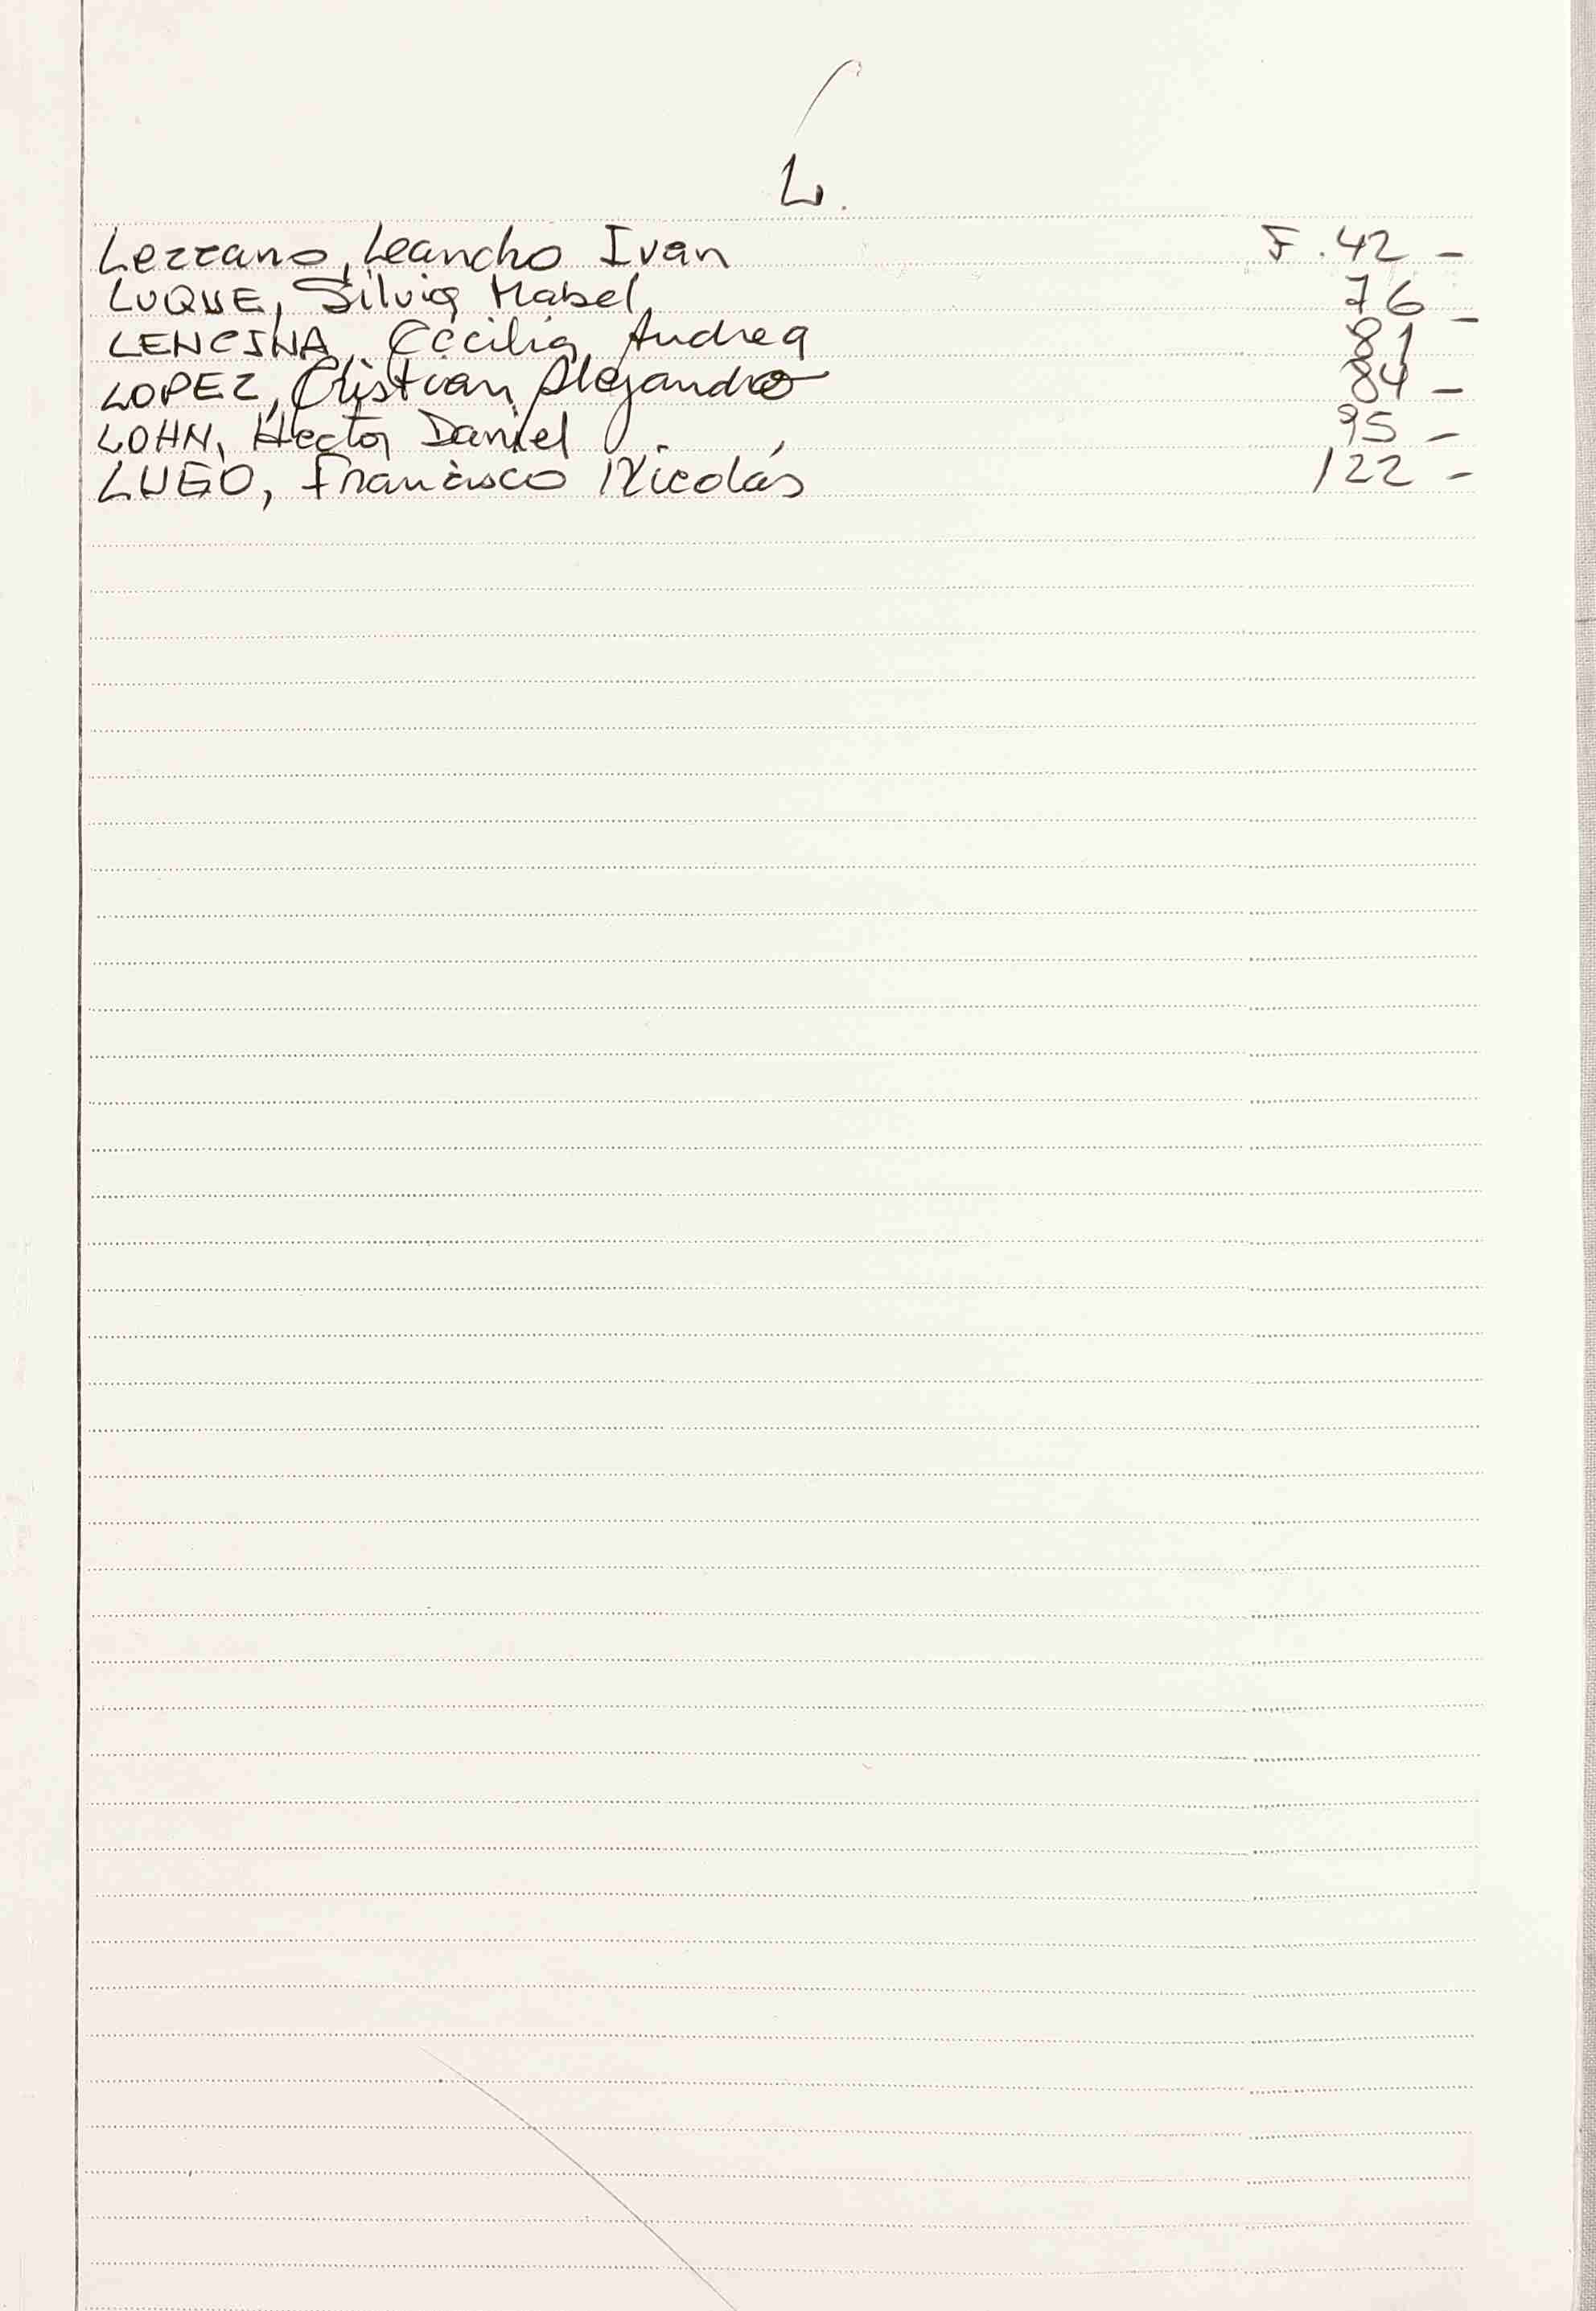 L.
Lezcano, Leandro Ivan F. 42 -
LUQUE, Silvia Mabel 76 -
LENCINA, Cecilia Andrea 81
LOPEZ, Cristian Alejandro 84 -
LOHN, Hector Daniel 95 -
LUGO, Francisco Nicolás 122 -